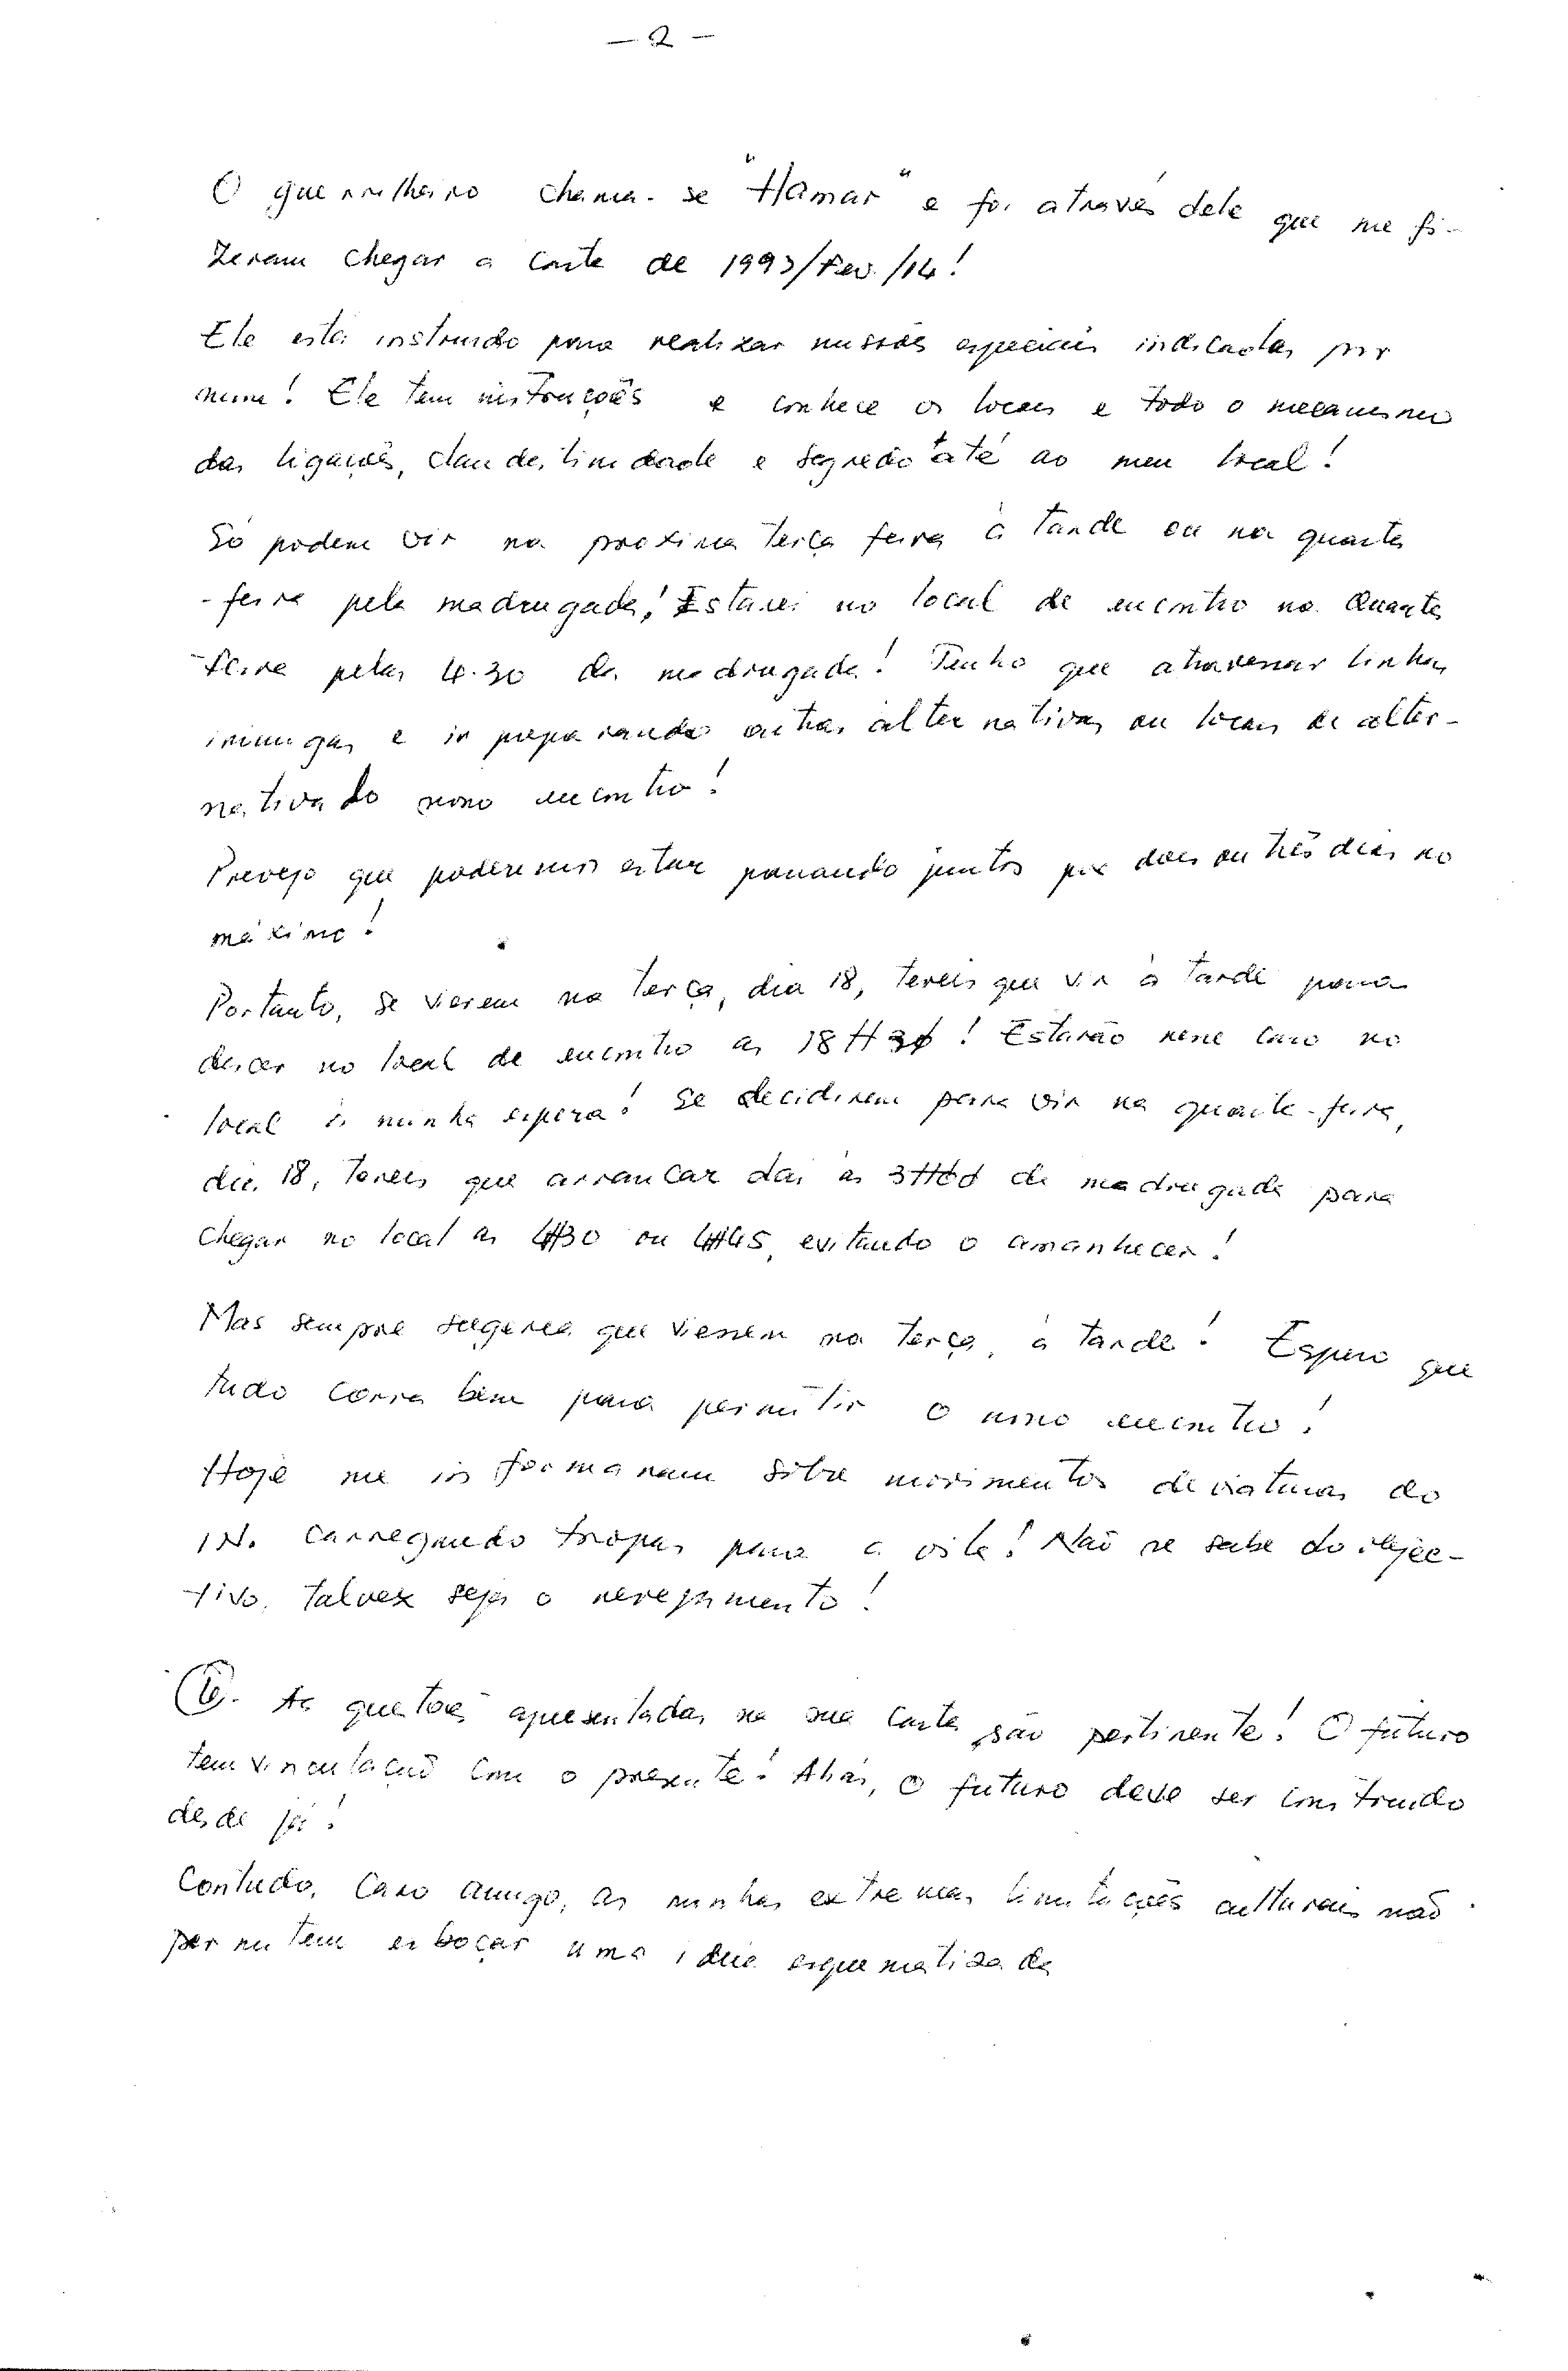 - 2 -
O guerrilheiro chama-se "Hamar" e foi através dele que me fi-
zeram chegar a carta de 1993/Fev./14!
Ele está instruido para realizar missões especiais indicadas por
mim! Ele tem instruções e conhece os locais e todo o mecanismo
das ligações, clandestinidade e segredo até ao meu local!
Só podem vir na proxima terça feira à tarde ou na quarta
-feira pela madrugada! Estarei no local de encontro na Quarta
-feira pelas 4.30 da madrugada! Tenho que atravessar linhas
inimigas e ir preparando outras alternativas ou locais de alter-
nativa do nosso encontro!
Prevejo que poderemos estar passando juntos por dois ou três dias no
máximo!
Portanto, se vierem na terça, dia 18, tereis que vir à tarde para
descer no local de encontro as 18H30! Estarão nesse caso no
local à minha espera! Se decidirem para vir na quarta-feira,
dia 18, tereis que arrancar dai às 3H00 da madrugada para
chegar no local as 4H30 ou 4H45, evitando o amanhecer!
Mas sempre sugeria que viessem na terça, à tarde! Espero que
tudo corra bem para permitir o nosso encontro!
Hoje me informaram sobre movimentos de viaturas do
IN. carregando tropas para a vila! Não se sabe do objec-
tivo, talvez seja o
6. As questões apresentadas na sua carta são pertinente! O futuro
tem vinculação com o presente! Aliás, o futuro deve ser construido
desde já!
Contudo, Caro amigo, as minhas extremas limitações culturais não
permitem esboçar uma ideia esquematizada